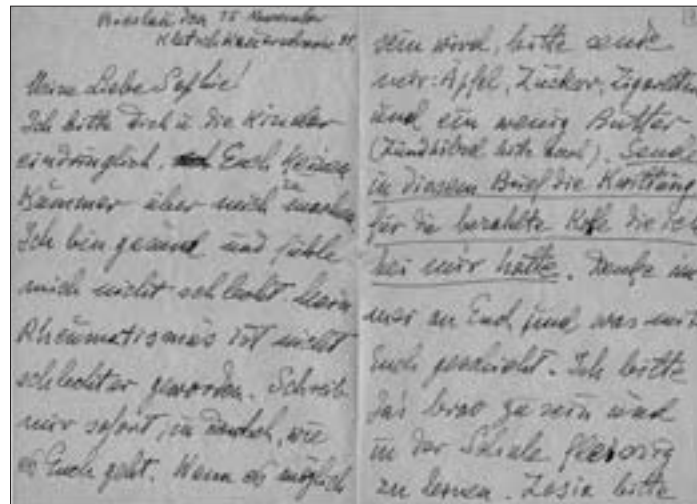 Breslau den 15 November
Kletschkauerstrasse 31.
Meine Liebe Sophie!
Ich bitte Dich u die Kinder
eindringlich, Euch keinen
Kummer über mich zu machen
Ich bin gesund und fühle
mich nicht schlecht Mein
Rheumatismus ist nicht
schlechter geworden. Schreib
mir sofort, in Deutsch, wie
es Euch geht. Wenn es möglich
sein wird, bitte sende
mir: Äpfel, Zucker, Zigaretten
und ein wenig Butter
(Zündhölzel bitte auch). Sende
in diesem Brief die Kwittung
für die bezahlte die ich
bei mir hatte. Denke im
mer an Euch und was mit
Euch geschieht. Ich bitte
brav zu sein und
in der Schule fleissig
zu lernen. Zosia bitte